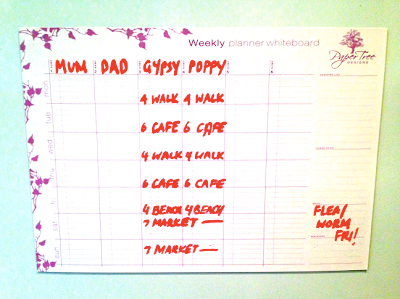 Weekly planner whiteboard
Paper Tree
DESIGNS
MUM DAD GYPSY POPPY
mon
4 WALK 4 WALK
tue
6 CAFE 6 CAFE
wed
4 WALK 4 WALK
thu
6 CAFE 6 CAFE
fri
4 BEACH 4 BEACH
sat
7 MARKET —
sun
7 MARKET —
FLEA/
WORM
FRI!